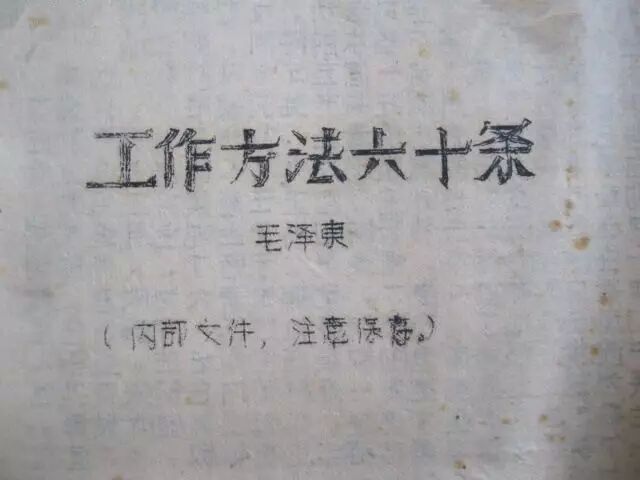 工作方法六十条
毛泽东
（内部文件，注意保存。）